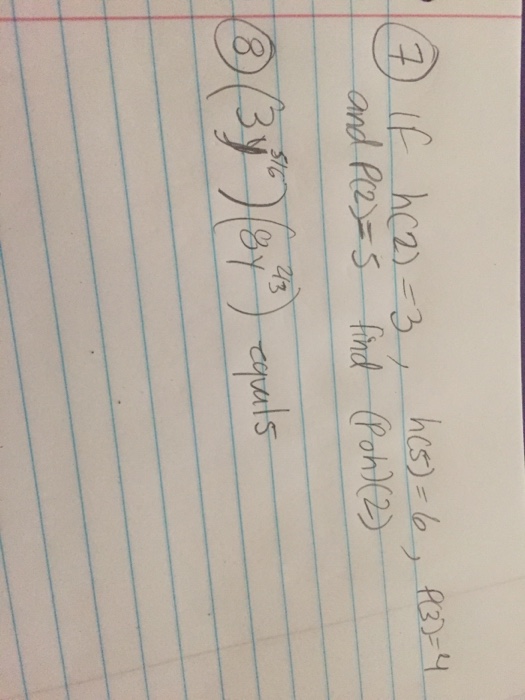 ⑦ If h(2)=3, h(5)=6, P(3)=4
and P(2)=5 find (Poh)(2)
⑧ (3y^5/6)(8y^2/3) equals